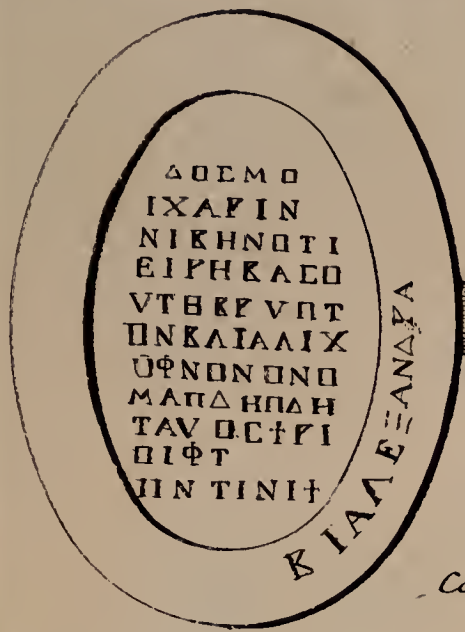 ΔΟΣΜΟ
ΙΧΑΡΙΝ
ΝΙΚΗΝΟΤΙ
ΕΙΡΗΚΑΣΟ
VΤΘΚΡVΠΤ
ΟΝΚΛΙΑΛΙΧ
ΟΦΝΟΝΟΝΟ
ΜΑΠΔΗΠΔΗ
ΤΑV
ΟΙΦΤ
ΚΙΑΛΕΞΑΝΔΡΑ